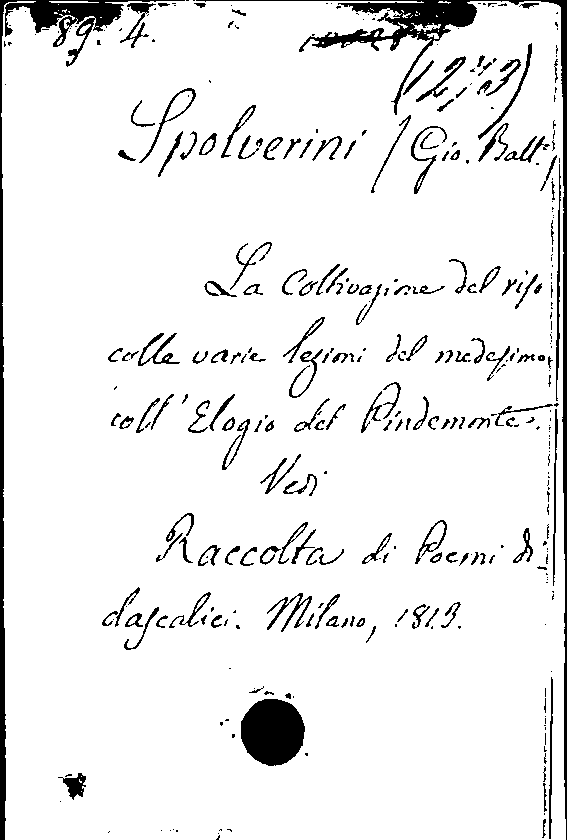 89. 4.
Spolverini / Gio. Batt.ª /
La Coltivazione del riso
colle varie lezioni del medesimo,
coll' Elogio del Pindemonte.
Vedi
Raccolta di Poemi di-
dascalici. Milano, 1813.